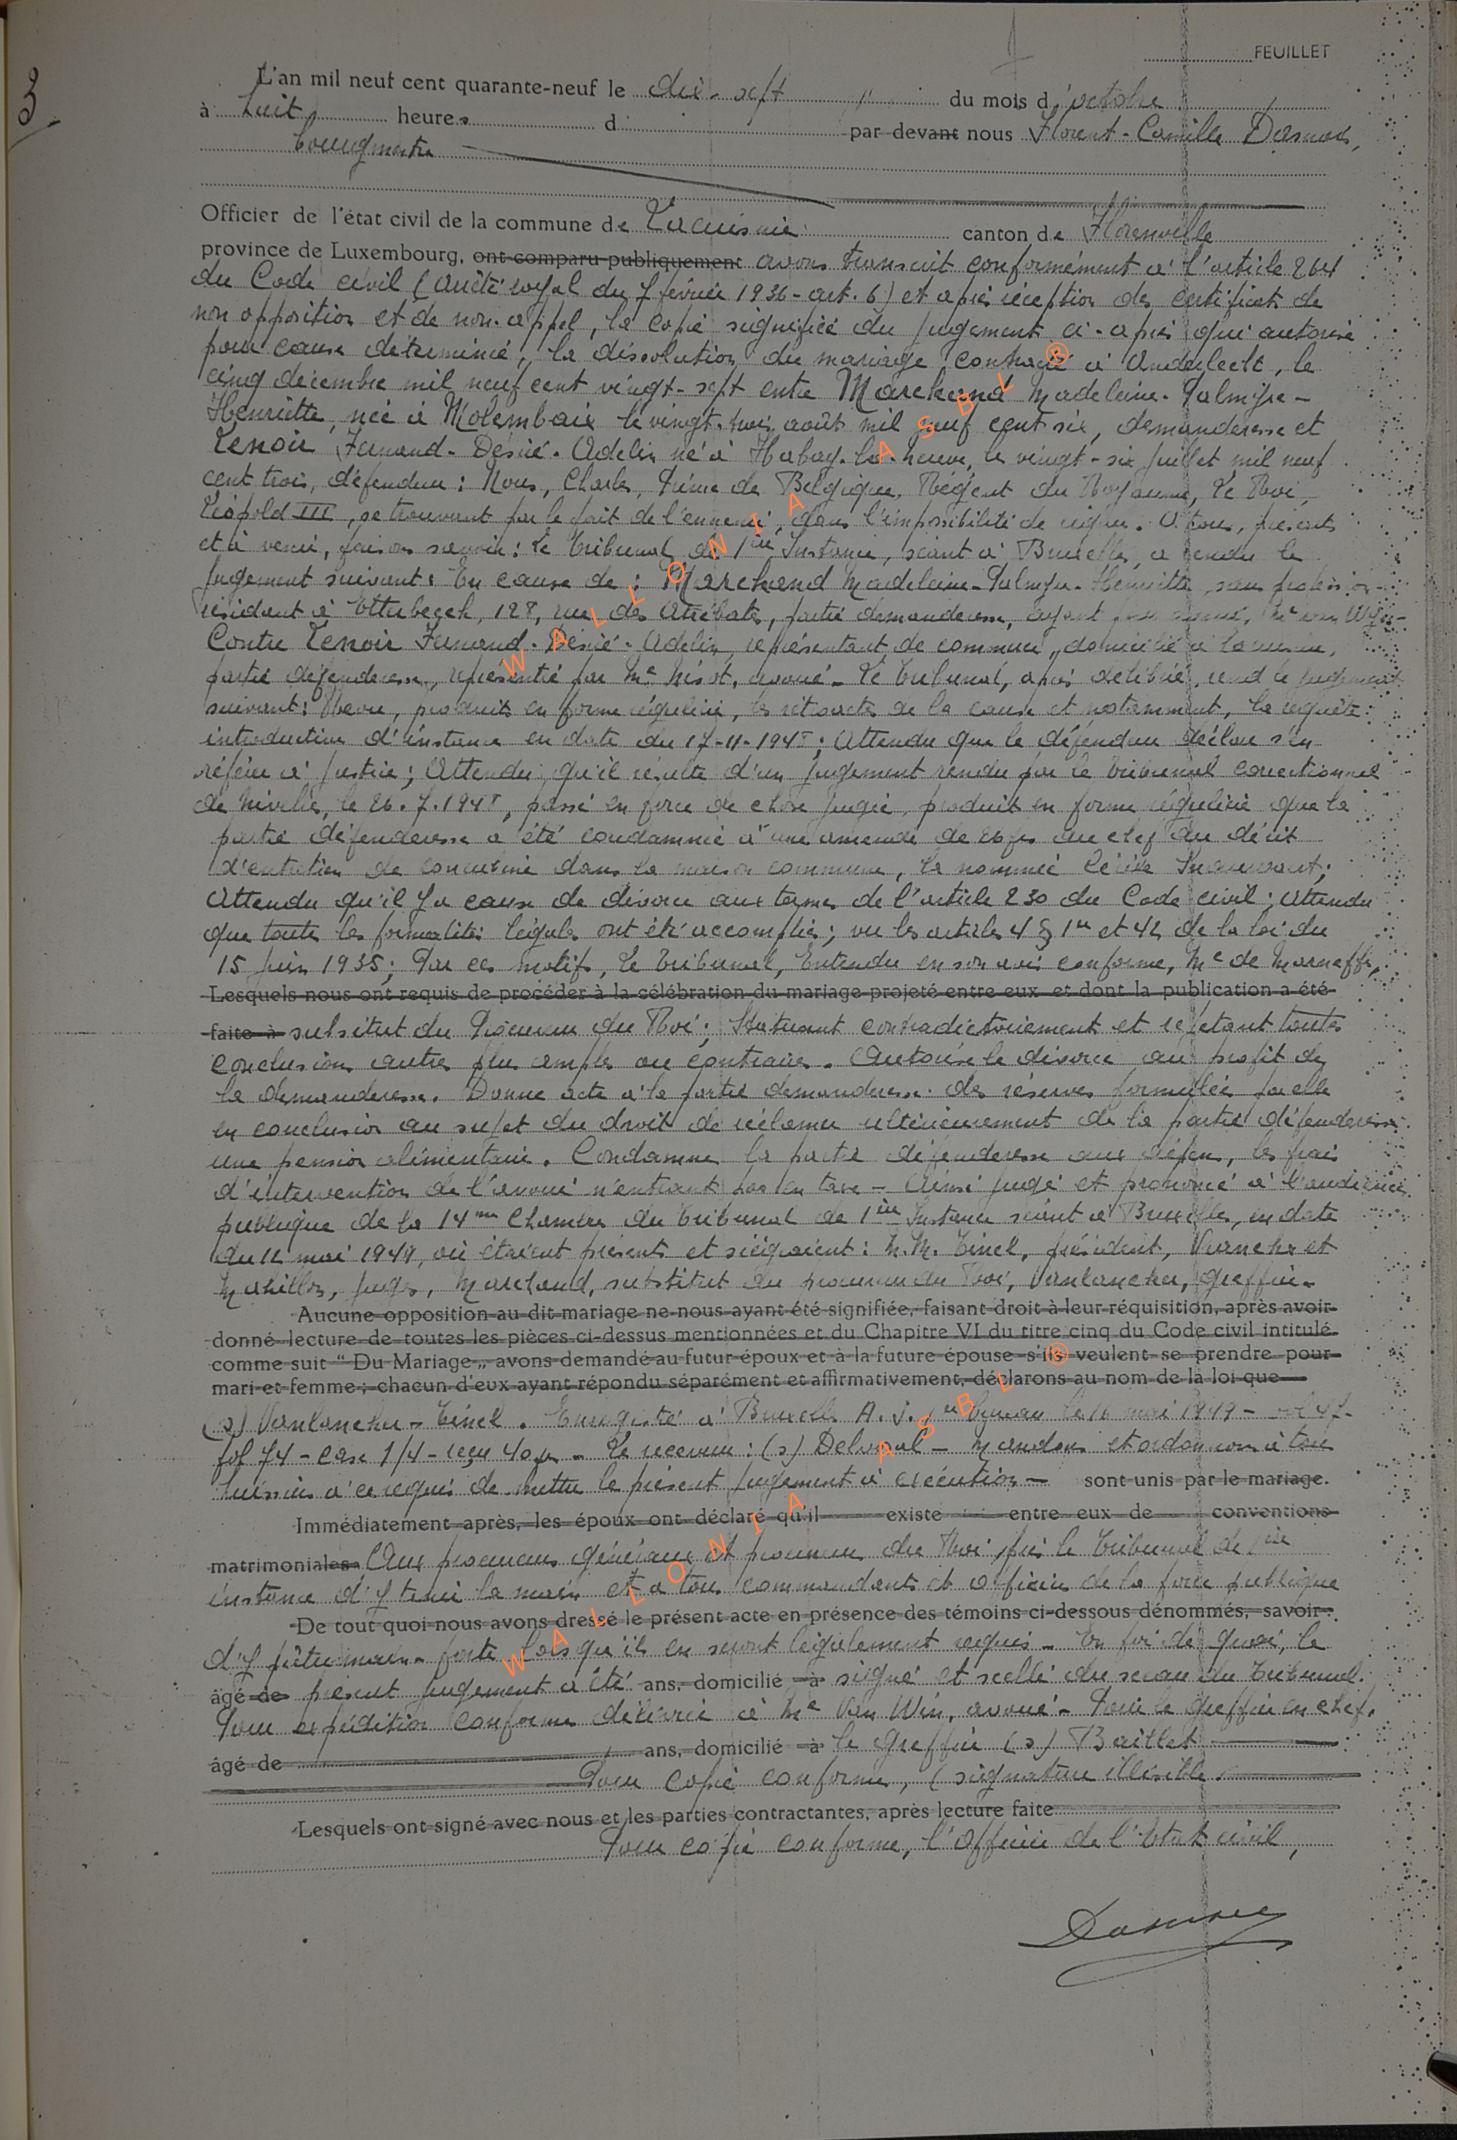 FEUILLET
3
L'an mil neuf cent quarante-neuf le dix-sept du mois d'octobre
à huit heures d par devant nous Florent-Camille Dasnois,
bourgmestre
Officier de l'état civil de la commune de Lacuisine canton de Florenville
province de Luxembourg, ont comparu publiquement avons transcrit conformément à l'article 264
du Code civil (arrêté royal du 7 février 1936 - art. 6) et après réception des certificats de
non opposition et de non-appel, la copie signifiée du jugement ci-après qui autorise
pour cause déterminée, la dissolution du mariage contracté à Anderlecht, le
cinq décembre mil neuf cent vingt-sept entre Marchand Madeleine-Palmyre-
Henriette, née à Molembaix le vingt-trois août mil neuf cent six, demanderesse et
Lenoir Fernand-Désiré-Adelin né à Habay-la-neuve, le vingt-six juillet mil neuf
cent trois, défendeur : Nous, Charles, Prince de Belgique, Régent du Royaume, Le Roi
Léopold III, se trouvant par le fait de l'ennemi, dans l'impossibilité de régner. A tous, présents
et à venir, faisons savoir : Le Tribunal de 1ère Instance, séant à Bruxelles, a rendu le
jugement suivant : En cause de : Marchand Madeleine-Palmyre-Henriette, sans profession
résidant à Etterbeek, 128, rue des Atrébates, partie demanderesse, ayant pour avoué, Me van Win-
Contre Lenoir Fernand-Désiré-Adelin, représentant de commerce, domicilié à
partie défenderesse, représentée par Me Nérot, avoué - Le Tribunal, après délibéré, rend le jugement
suivant : Vu, produits en forme régulière, les rétroactes de la cause et notamment, la requête
introductive d'instance en date du 17-11-1948 ; Attendu que le défendeur déclare s'en
référer à justice ; Attendu qu'il résulte d'un jugement rendu par le tribunal correctionnel
de Nivelles, le 26.7.1948, passé en force de chose jugée, produit en forme régulière que la
partie défenderesse a été condamnée à une amende de 26 frs du chef du délit
d'entretien de concubine dans la maison commune, la nommée
Attendu qu'il y a cause de divorce aux termes de l'article 230 du Code civil ; Attendu
que toutes les formalités légales ont été accomplies ; vu les articles 4 § 1er et 42 de la loi du
15 juin 1935 ; Par ces motifs, Le Tribunal, Entendu en son avis conforme, Me de Marneffe,
Lesquels nous ont requis de procéder à la célébration du mariage projeté entre eux et dont la publication a été
faite à substitut du Procureur du Roi ; Statuant contradictoirement et rejetant toutes
conclusions autres plus amples ou contraires. Autorise le divorce au profit de
la demanderesse. Donne acte à la partie demanderesse des réserves formulées par elle
en conclusion au sujet du droit de réclamer ultérieurement de la partie défenderesse
une pension alimentaire. Condamne la partie défenderesse aux dépens, les frais
d'intervention de l'avoué n'entrant pas en taxe - Ainsi jugé et prononcé à l'audience
publique de la 14me Chambre du tribunal de 1ère Instance séant à Bruxelles, en date
du 12 mai 1949, où étaient présents et siégeaient : M.M. Tinel, président, et
Mahillon, juges, Marchand, substitut du procureur du Roi, Vanlancker, greffier-
Aucune opposition au dit mariage ne nous ayant été signifiée, faisant droit à leur réquisition, après avoir
donné lecture de toutes les pièces ci-dessus mentionnées et du Chapitre VI du titre cinq du Code civil intitulé
comme suit " Du Mariage „ avons demandé au futur époux et à la future épouse s'ils veulent se prendre pour
mari et femme ; chacun d'eux ayant répondu séparément et affirmativement, déclarons au nom de la loi que
(s) Vanlancker - Tinel. Enregistré à Bruxelles A. J. 1er bureau le 16 mai 1949 - vol 47-
fol 74 - case 1/4 - reçu 40 frs - Le receveur : (s) Delsupal - Mandons et ordonnons à tous
huissiers à ce requis de mettre le présent jugement à exécution - sont unis par le mariage.
Immédiatement après, les époux ont déclaré qu'il existe entre eux de conventions
matrimoniales Aux procureurs généraux et procureurs du Roi, près le Tribunal de 1ère
instance d'y tenir la main et à tous commandants et officiers de la force publique
De tout quoi nous avons dressé le présent acte en présence des témoins ci-dessous dénommés, savoir :
d'y prêter main-forte lorsqu'ils en seront légalement requis - En foi de quoi, le
âgé de présent jugement a été ans, domicilié à signé et scellé du sceau du Tribunal.
Pour expédition conforme délivrée à Me Van Win, avoué - Pour le greffier en chef,
âgé de ans, domicilié à le greffier (s) Baillet
Pour copie conforme, (signature illisible
Lesquels ont signé avec nous et les parties contractantes, après lecture faite
Pour copie conforme, l'Officier de l'état civil,
Dasnois
WALLONIA ASBL ®
WALLONIA ASBL ®